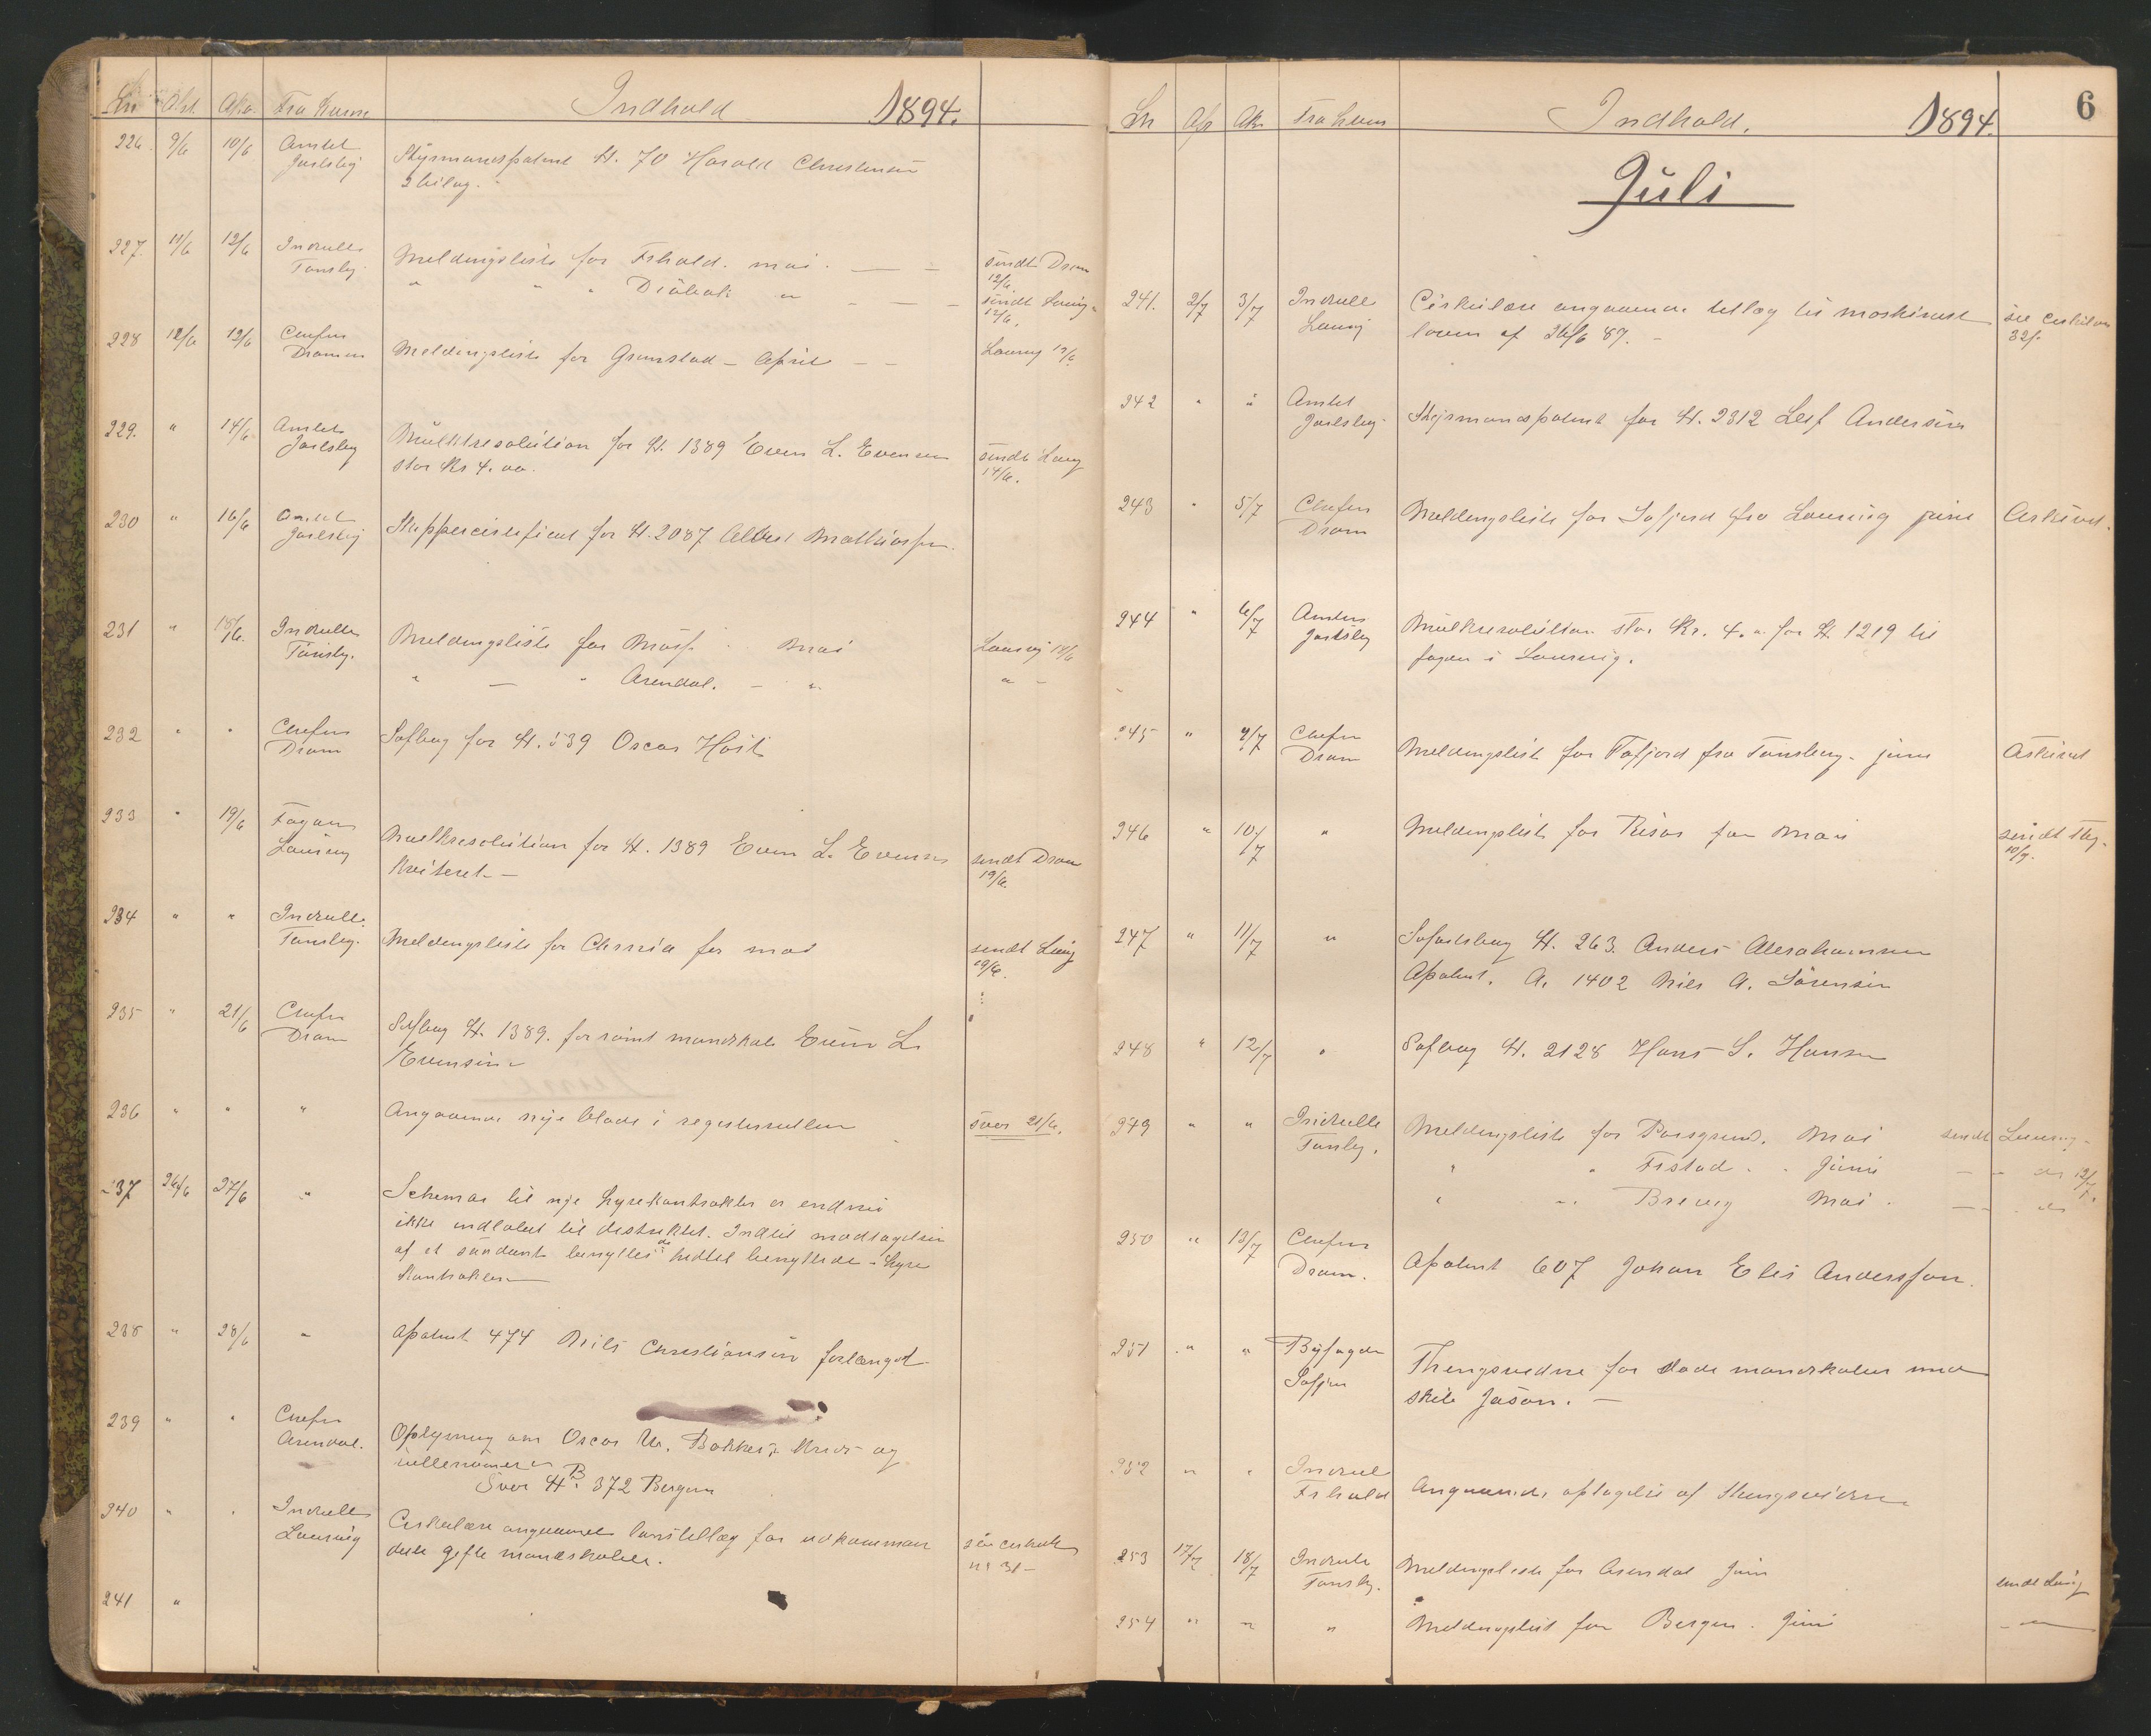 Fra Hvem
Indhold
1894.
226. 9/6 10/6 Amtet
Jarlsbg
Styrmandspatent H. 70 Harald Christensen
2 bilag.
227. 11/6 12/6 Indrulle
Tønsbg.
Meldingsliste for Frhald. mai. — —
sendt Dram
12/6.
" " " Drøbak " — — —
sendt Laurvg
12/6.
228 12/6 12/6 Chefen
Drammen
Meldingsliste for Grimstad — April — —
Laurvg 12/6
229. " 14/6 Amtet
Jarlsbg
Mulktresolution for H. 1389 Even L. Evensen
stor Kr 4.00.
sendt Laurvg
14/6.
230 " 16/6 Amtet
Jarlsbg
Skippercertificat for H. 2087 Albert Mathiassen.
231 " 18/6. Indrulle
Tønsbg.
Meldingsliste for Moss. Mai
Laurvig 18/6
" — " Arendal. — "
" —
232 " " Chefen
Dram
Søfbog for H. 539 Oscar Høst
233 " 19/6 Fogden
Laurvig
Mulktresolution for H. 1389 Even L. Evensen
kviteret —
sendt Dram
19/6.
234 " " Indrulle
Tønsbg.
Meldingsliste for Chrania for mai
sendt Laurvg
19/6.
235 " 21/6 Chefen
Dram
Søfbog H. 1389. for rømt mandskab Even L.
Evensen
236 " " "
Angaaende nye blade i registerrullen
svar 21/6.
237 26/6 27/6 "
Schemar til nye hyrekontrakter er endnu
ikke indløbet til distriktet. Indtil modtagelsen
af et saadant benyttes de hidtil benyttede hyre
kontrakter
238 " 28/6 "
Apatent 474 Nils Christiansen forlænget
239 " " Chefen
Arendal.
Oplysning om Oscar M. Bakkes kreds og
rullenummer
Svar H. B 372 Bergen
240 " " Indrulle
Laurvig
Cirkulære angaaende lønstillæg for udkomman
dede gifte mandskaber.
see cirkulær
nr 31 —
241 "
6
Fra Hvem
Indhold.
1894.
Juli
241. 2/7 3/7 Indrulle
Laurvg
Cirkulære angaaende tillæg til maskinist
loven af 26/6 87. —
see cirkulær
32.
242 " " Amtet
Jarlsbg
Styrmandspatent for H. 2312 Leif Andersen
243 " 5/7 Chefen
Dram
Meldingsliste for Søfjord fra Laurvig juni
Arkivet.
244 " 6/7 Amtet
Jarlsbg
Mulktresolution stor Kr. 4. for H. 1219 til
fogden i Laurvig.
245 " 9/7 Chefen
Dram
Meldingsliste for Tofjord fra Tønsberg. juni
Arkivet
246 " 10/7 "
Meldingsliste for Risør for Mai
sendt Tbg.
10/7.
247 " 11/7 "
Søfartsbog H. 263. Anders Abrahamsen
Apatent. A. 1402 Nils A. Sørensen
248 " 12/7 "
Søfbog H. 2128 Hans S. Hansen
249 " " Indrulle
Tønsbg.
Meldingsliste for Porsgrund. Mai sendt Laurvg.
" " Frstad. " Juni — " do 12/7.
" " Brevig Mai. — — " do
250 " 13/7 Chefen
Dram.
Apatent 607 Johan Elis Andersson.
251 " " Byfogden
Søfjen
Thingsvidne for døde mandskaber med
skib Jason. —
252 " " Indrul
Frhald
Angaaende optagelse af thingsvidne
253 17/7 18/7 Indrulle
Tønsbg.
Meldingsliste for Arendal Juni
sendt Laurvg
254 " " "
Meldingsliste for Bergen. Juni
— " —